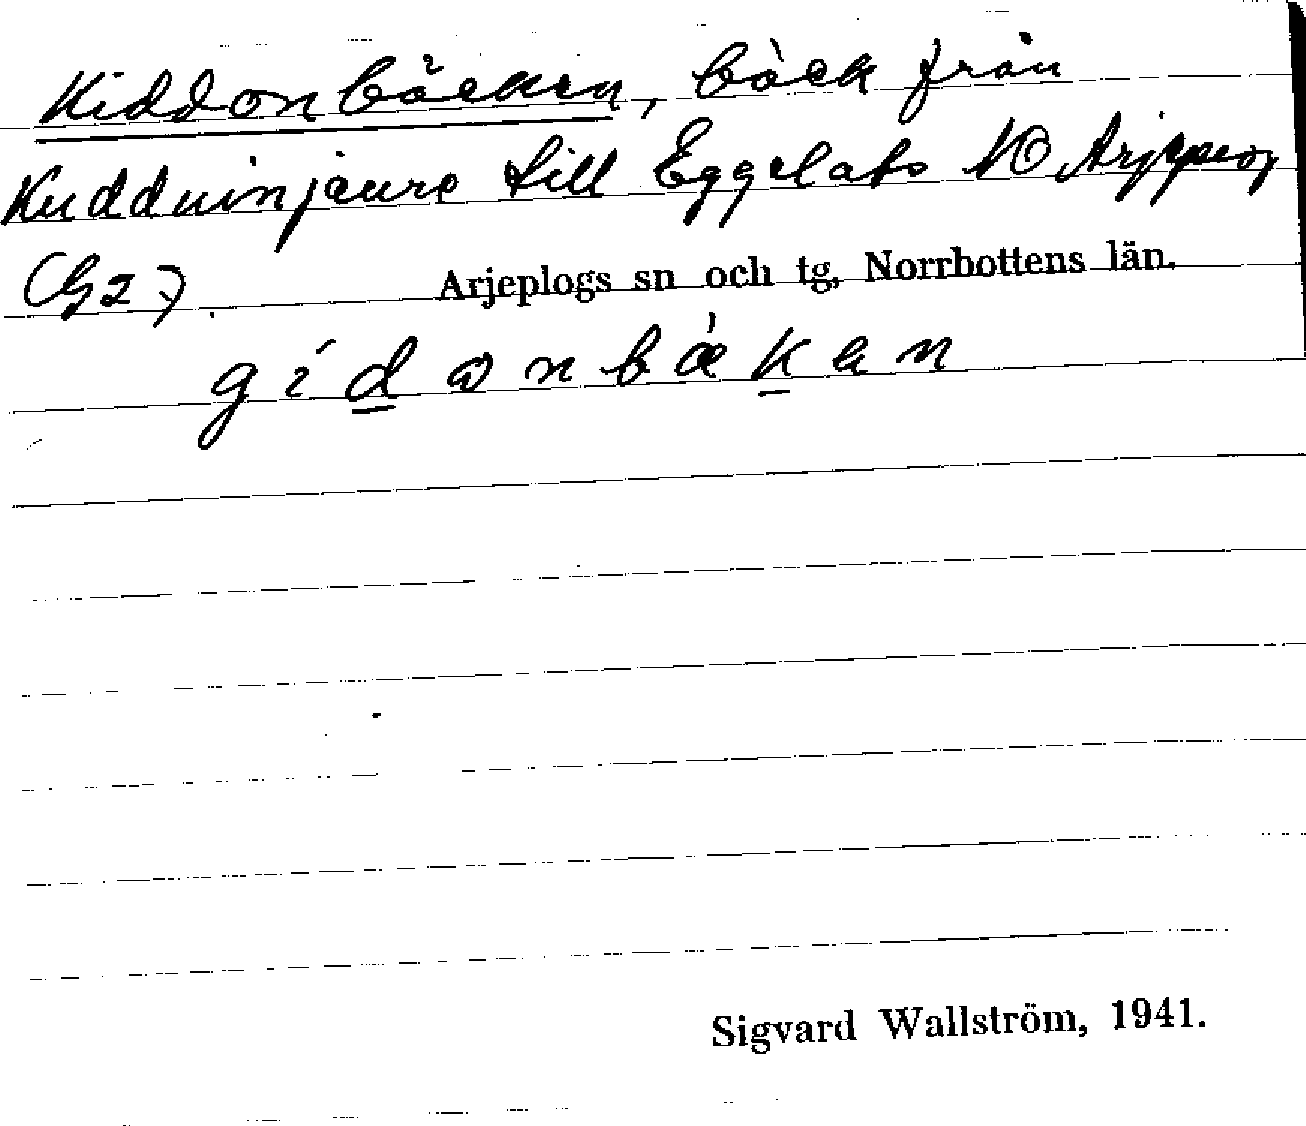 Kiddonbäcken, bäck från
Kudduinjaure till Eggelats NO Arjeplog
(G2)
Arjeplogs sn och tg, Norrbottens län.
gídɷnbǽkɐn
Sigvard Wallström, 1941.